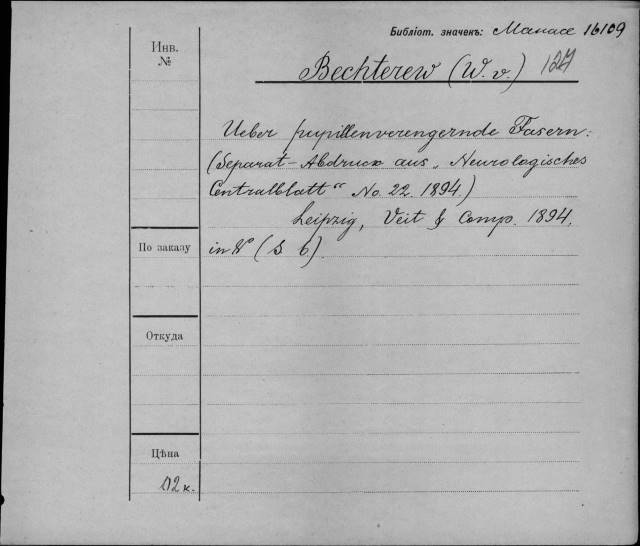 Библіот. значекъ: 16109
Инв.
№
Bechterew (W. v.) 127
Ueber pupillenverengernde Fasern:
(Separat-Abdruck aus „Neurologisches
Centralblatt“ No. 22. 1894)
Leipzig, Veit & Comp. 1894.
По заказу
in 8° (S 6).
Откуда
Цѣна
12 к.